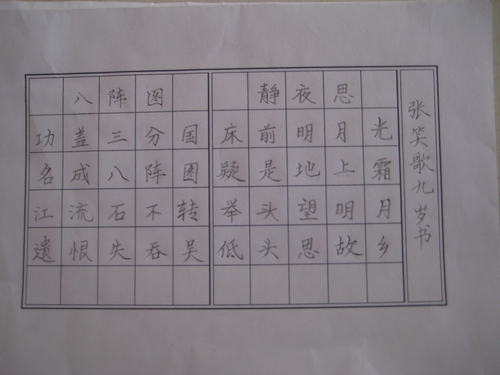 八阵图
功盖三分国
名成八阵图
江流石不转
遗恨失吞吴
静夜思
床前明月光
疑是地上霜
举头望明月
低头思故乡
张笑歌九岁书